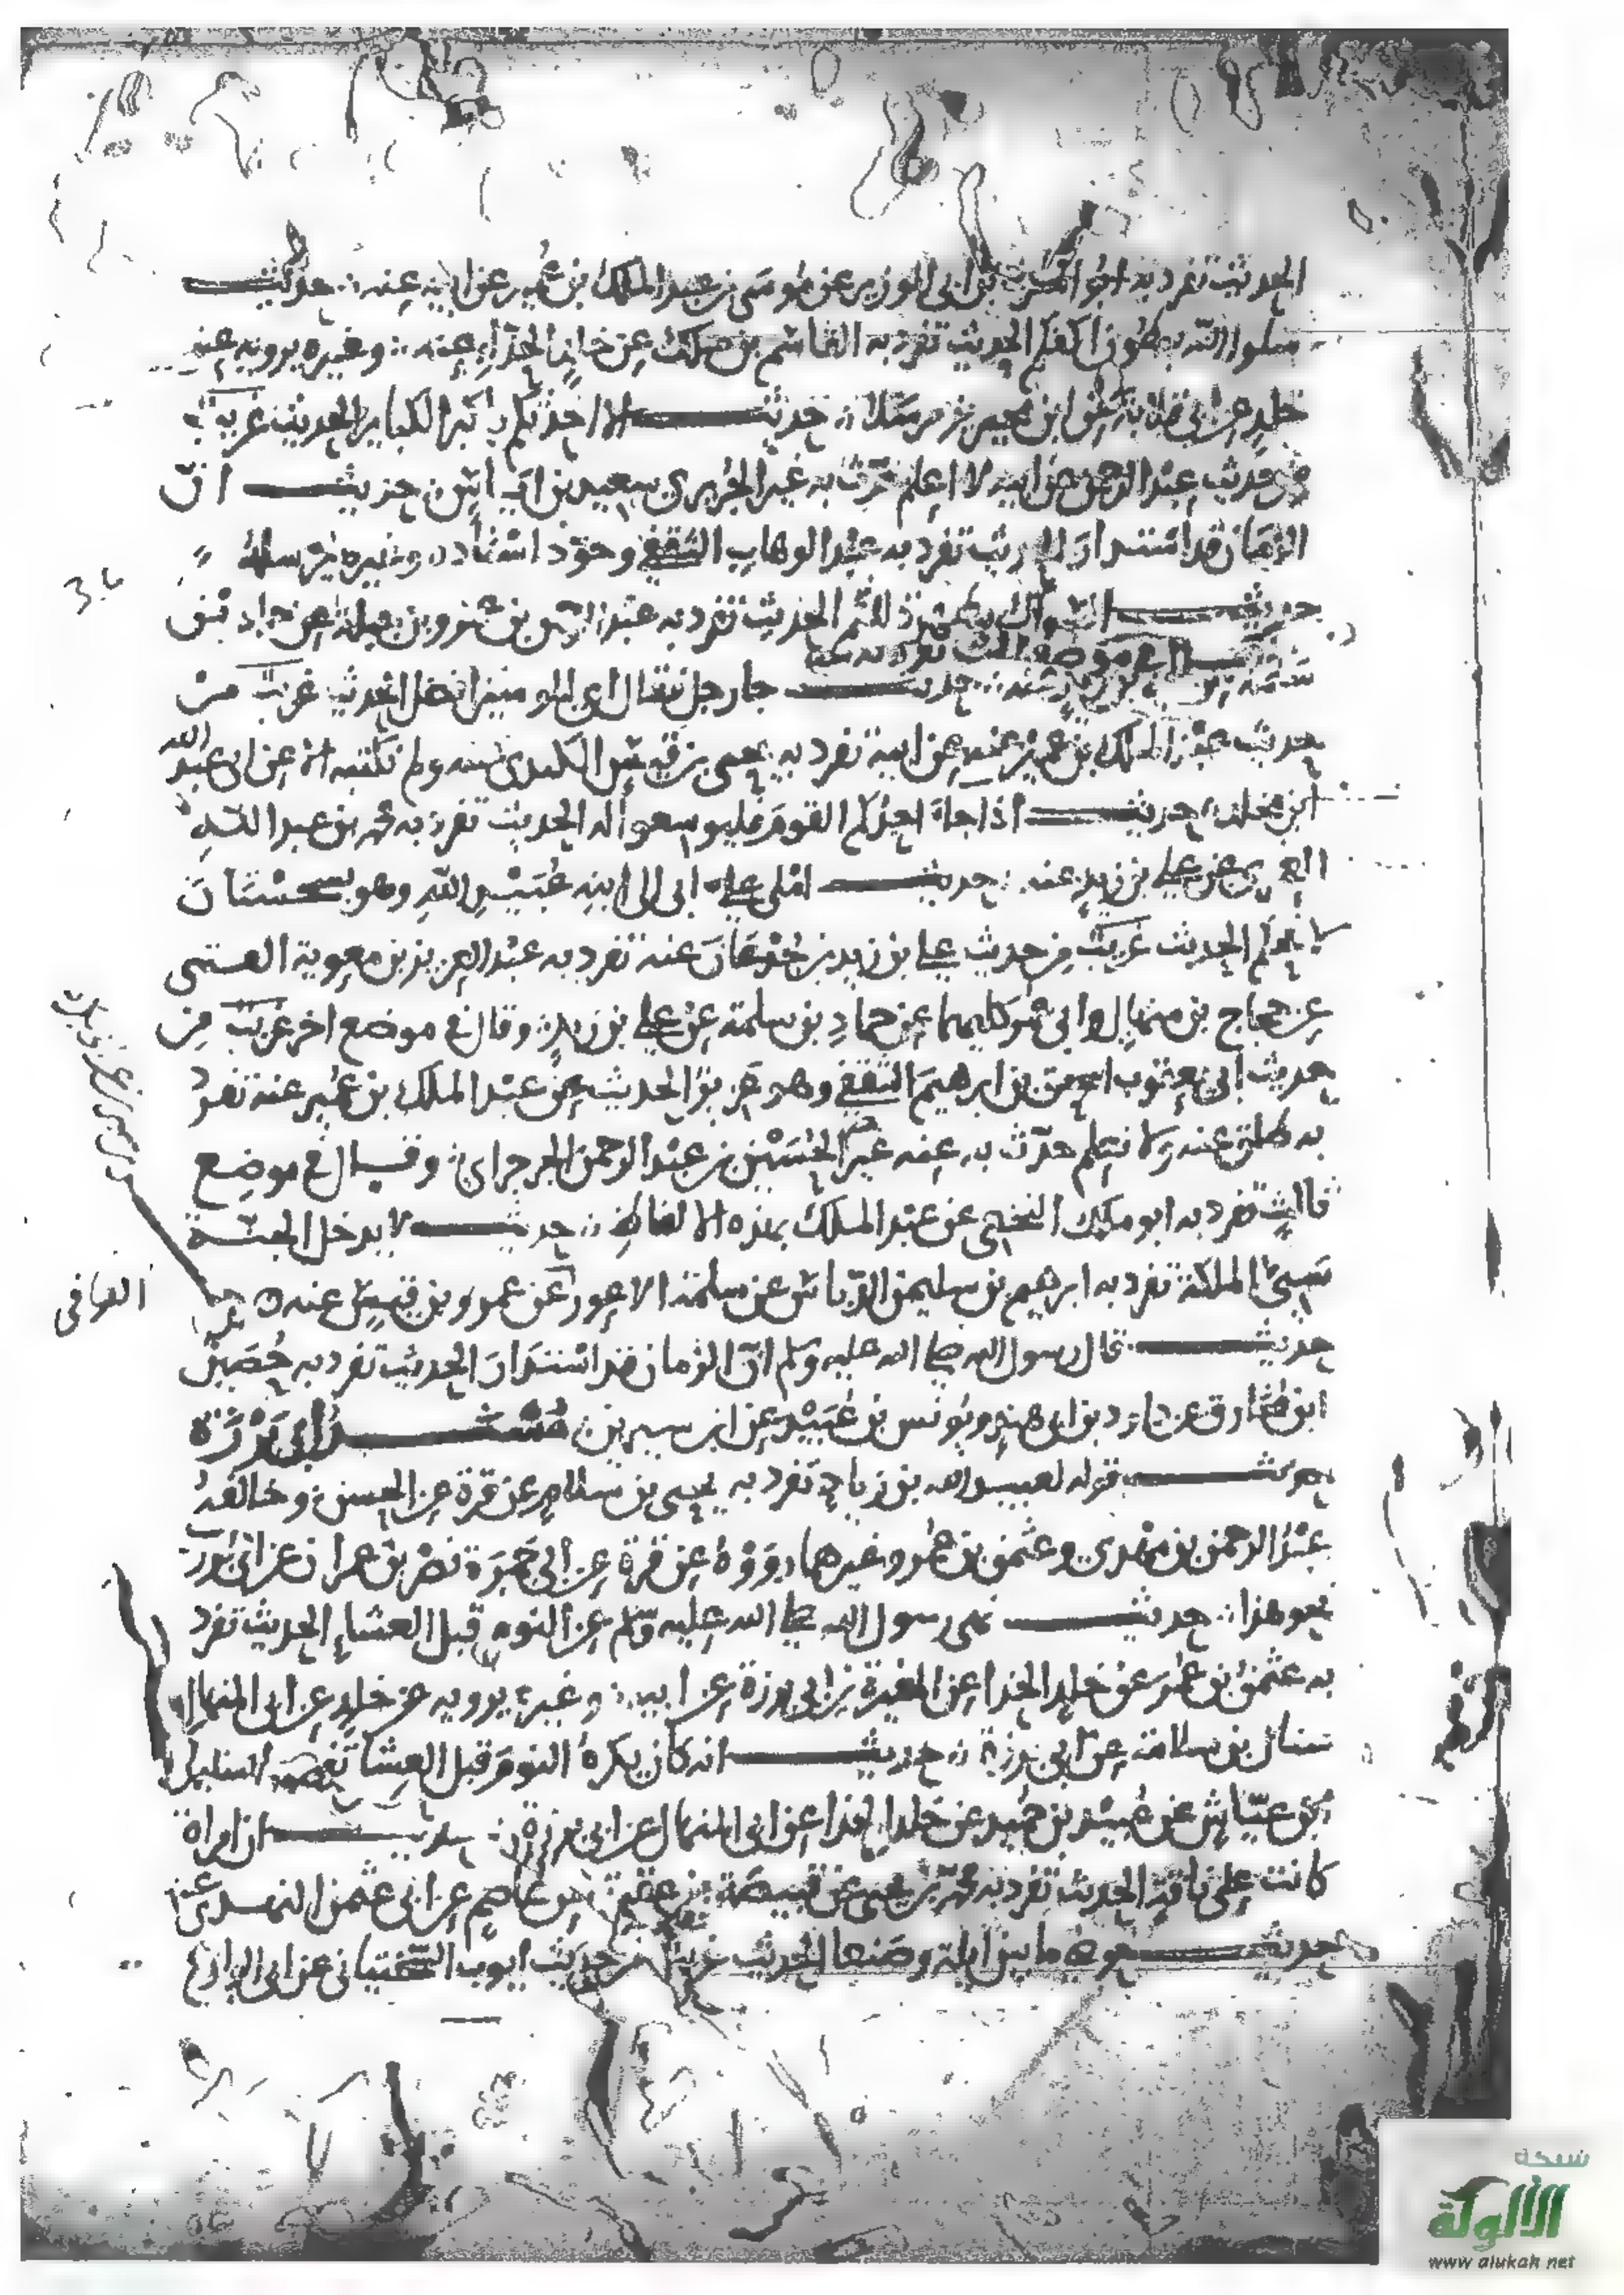 الحديث تفرد به ابو المطرف بن ابى الوزير عن موسى بن عبد الملك بن عمير عن ابيه عنه حديث
سلوا الله ببطون اكفكم الحديث تفرد به القاسم بن ملك عن خالد الحذاء عنه وغيره يرويه عن
خلد عن ابى قلابة عن ابن محيريز مرسلا حديث الا احدثكم باكبر الكباير الحديث غريب
من حديث عبد الرحمن عن ابيه لا اعلم حدث به غير الجريرى سعيد بن اياس حديث ان
الزمان قد استدار الحديث تفرد به عبد الوهاب الثقفى وجود اسناده وغيره يرسله
حديث الحديث تفرد به عبد الرحمن بن عمرو بن جبلة عن حماد بن
حديث جا رجل فقال اى المومنين افضل الحديث غريب من
حديث عبد الملك بن عمير عنه عن ابيه تفرد به يحيى بن قيس الكندى عنه ولم نكتبه الا عن ابى عبد الله
ابن مخلد حديث اذا جاء احدكم القوم فليوسعوا له الحديث تفرد به محمد بن عبد الله
العمى عن على بن زيد عنه حديث املى على ابى الى ابنه عبيد الله وهو بسجستان
الحديث غريب من حديث على بن زيد بن جدعان عنه تفرد به عبد العزيز بن معوية العتبى
عن حجاج بن منهال وابى عمر كليهما عن حماد بن سلمة عن على بن زيد وقال فى موضع اخر غريب من
حديث ابى يعقوب اسحق بن ابرهيم الثقفى وهو عزيز الحديث عن عبد الملك بن عمير عنه تفرد
به طلق عنه ولا نعلم حدث به عنه غير الحسين بن عبد الرحمن الجرجراى وقال فى موضع
ثالث تفرد به ابو ملك النخعى عن عبد الملك بهذه الالفاظ حديث لا يدخل الجنة
سيئ الملكة تفرد به ابرهيم بن سليمن الزيات عن سلمة الاعور عن عمرو بن قيس عنه
حديث قال رسول الله صلى الله عليه وسلم ان الزمان قد استدار الحديث تفرد به حصين
ابن مخارق عن داود بن ابى هند ويونس بن عبيد عن ابن سيرين مسند ابى برزة
حديث قوله لعبيد الله بن زياد تفرد به يحيى بن سلام عن قرة عن الحسن وخالفه
عبد الرحمن بن مهدى وعثمن بن عمر وغيرهما رووه عن قرة عن ابى جمرة نصر بن عمران عن ابى برزة
نحو هذا حديث نهى رسول الله صلى الله عليه وسلم عن النوم قبل العشاء الحديث تفرد
به عثمن بن عمر عن خلد الحذا عن المغيرة بن ابى برزة عن ابيه وغيره يرويه عن خلد عن ابى المنهال
سنان بن سلامة عن ابى برزة حديث انه كان يكره النوم قبل العشا
بن عياش عن عبيد بن حميد عن خلد الحذا عن ابى المنهال عن ابى برزة حديث ان امراة
كانت على ناقة الحديث تفرد به محمد بن يحيى عن قبيصة بن عقبة عن عاصم عن ابى عثمن النهدى عنه
حديث حوضى ما بين ايلة وصنعا الحديث غريب من حديث ايوب السختيانى عن ابى الوازع
العوافى
شبكة
الألوكة
www alukah net